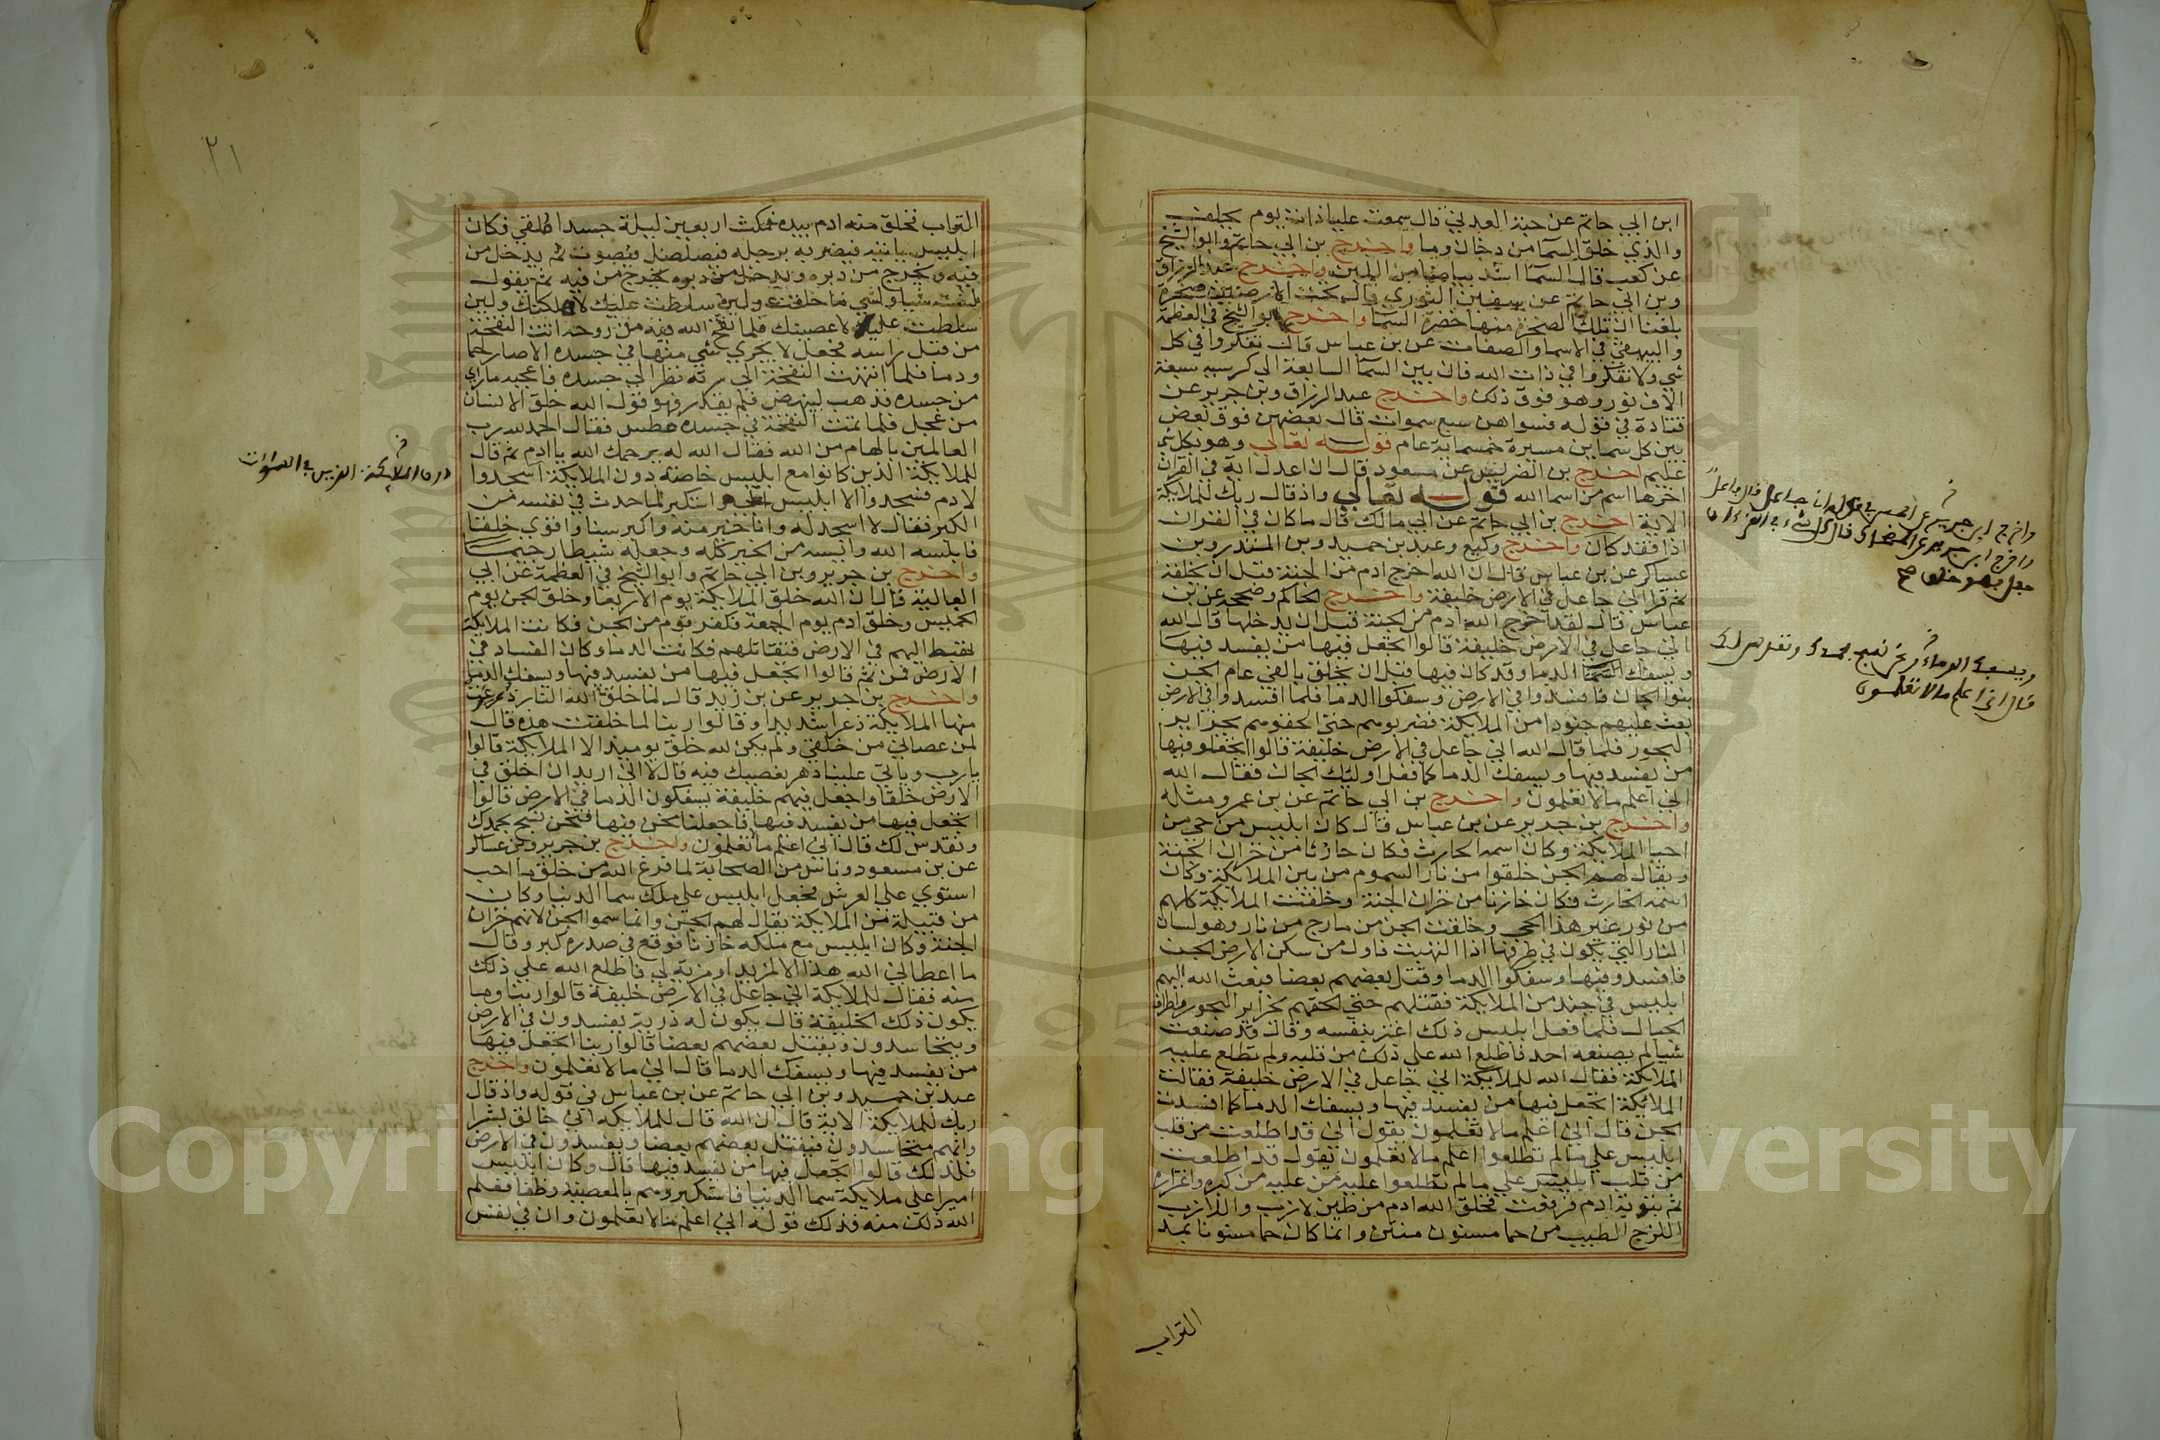 ابن ابي حاتم عن حبة العدني قال سمعت عليا ذات يوم يحلف
والذي خلق السما من دخان وما واخرج بن ابي حاتم وابو الشيخ
عن كعب قال السما اشد بياضا من اللبن واخرج عبد الرزاق
وبن ابي حاتم عن سفين الثوري قال تحت الارضين صخرة
بلغنا ان تلك الصخرة منها خضرة السما واخرج ابو الشيخ في العظمة
والبيهقي في الاسما والصفات عن بن عباس قال تفكروا في كل
شي ولا تفكروا في ذات الله فان بين السما السابعة الى كرسيه سبعة
الاف نور وهو فوق ذلك واخرج عبد الرزاق وبن جرير عن
قتادة في قوله فسواهن سبع سموات قال بعضهن فوق بعض
بين كل سماين مسيرة خمسماية عام قوله تعالي وهو بكل شي
عليم اخرج بن الضريس عن مسعود قال ان اعدل اية في القران
اخرها اسم من اسما الله قوله تعالي واذ قال ربك للملايكة
الاية اخرج بن ابي حاتم عن ابي مالك قال ما كان في القران
اذا فقد كان واخرج وكيع وعبد بن حميد وبن المنذر وبن
عساكر عن بن عباس قال ان الله اخرج ادم من الجنة قبل ان يخلقه
ثم قرا اني جاعل في الارض خليفة واخرج الحاكم وصححه عن بن
عباس قال لقد اخرج الله ادم من الجنة قبل ان يدخلها قال الله
اني جاعل في الارض خليفة قالوا اتجعل فيها من يفسد فيها
ويسفك الدما وقد كان فيها قبل ان يخلق بالفي عام الجن
بنوا الجان فافسدوا في الارض وسفكوا الدما فلما افسدوا في الارض
بعث عليهم جنودا من الملايكة فضربوهم حتى الحقوهم بجزاير
البحور فلما قال الله اني جاعل في الارض خليفة قالوا اتجعل فيها
من يفسد فيها ويسفك الدما كما فعل اوليك الجان فقال الله
اني اعلم مالا تعلمون واخرج بن ابي حاتم عن بن عمرو مثله
واخرج بن جرير عن بن عباس قال كان ابليس من حي من
احيا الملايكة وكان اسمه الحارث فكان خازنا من خزان الجنة
ويقال لهم الجن خلقوا من نار السموم من بين الملايكة وكان
اسمه الحارث فكان خازنا من خزان الجنة وخلقت الملايكة كلهم
من نور غير هذا الحي وخلقت الجن من مارج من نار وهو لسان
النار الذي يكون في طرفها اذا التهبت فاول من سكن الارض الجن
فافسدو فيها وسفكوا الدما وقتل بعضهم بعضا فبعث الله اليهم
ابليس في جند من الملايكة فقتلهم حتي الحقهم بجزاير البحور واطراف
الجبال فلما فعل ابليس ذلك اغتر بنفسه وقال قد صنعت
شيا لم يصنعه احد فاطلع الله علي ذلك من قلبه ولم تطلع عليه
الملايكة فقال الله للملايكة اني جاعل في الارض خليفة فقالت
الملائكة اتجعل فيها من يفسد فيها ويسفك الدما كما افسدت
الجن قال اني اعلم مالا تعلمون يقول اني قد اطلعت من قلب
ابليس علي مالم تطلعوا اعلم مالا تعلمون يقول قد اطلعت
من قلب ابليس علي مالم تطلعوا عليه من كبره واغتراره
ثم بتوبة ادم فرفعت فخلق الله ادم من طين لازب واللازب
اللزج الطيب من حما مسنون منتن وانما كان حما مسنونا بعد
التراب
واخرج ابن جرير عن الحسن في قوله اني جاعل قال فاعل
واخرج ابن جرير عن الضحاك قال كل شيء في القرءان
جعل فهو خلق صح
ويسفك الدماء ونحن نسبح بحمدك ونقدس لك
قال اني اعلم مالا تعلمون
٢١
التراب فخلق منه ادم بيده فمكث اربعين ليلة جسدا ملقي فكان
ابليس ياتيه فيضربه برجله فيصلصل فيصوت ثم يدخل من
فيه ويخرج من دبره ويدخل من دبره يخرج من فيه ثم يقول
لست شيا ولشي ما خلقت ولين سلطت عليك لاهلكنك ولين
سلطت علي لاعصينك فلما نفخ الله فيه من روحه اتت النفخة
من قبل راسه فجعل لا يجري شي منها في جسده الا صار لحما
ودما فلما انتهت النفخة الي سرته نظر الي جسده فاعجبه ماراي
من جسده فذهب لينهض فلم يقدر فهو قول الله خلق الانسان
من عجل فلما تمت النفخة في جسده عطس فقال الحمد لله رب
العالمين بالهام من الله فقال الله له يرحمك الله يا ادم ثم قال
للملايكة الذين كانوا مع ابليس خاصة دون الملايكة اسجدوا
لادم فسجدوا الا ابليس استكبر لما حدث في نفسه من
الكبر فقال لا اسجد له وانا خير منه واكبر سنا واقوي خلقا
فابلسه الله وايسه من الخير كله وجعله شيطا رجيما
واخرج بن جرير وبن ابي حاتم وابو الشيخ في العظمة عن ابي
العالية قال ان الله خلق الملايكة يوم الاربعا وخلق الجن يوم
الخميس وخلق ادم يوم الجمعة فكفر قوم من الجن فكانت الملايكة
تهبط اليهم في الارض فتقاتلهم فكانت الدما وكان الفساد في
الارض فمن ثم قالوا اتجعل فيها من يفسد فيها ويسفك الدما
واخرج بن جرير عن بن زيد قال لما خلق الله النار ذعرت
منها الملايكة ذعرا شديدا وقالوا ربنا لما خلقت هذه قال
لمن عصاني من خلقي ولم يكن لله خلق يوميذ الا الملايكة قالوا
يارب وياتي علينا دهر نعصيك فيه قال لا اني اريد ان اخلق في
الارض خلقا واجعل فيهم خليفة يسفكون الدما في الارض قالوا
اتجعل فيها من يفسد فيها فاجعلنا نحن فيها فنحن نسبح بحمدك
ونقدس لك قال اني اعلم مالا تعلمون واخرج بن جرير وبن عساكر
عن بن مسعود وناس من الصحابة لما فرغ الله من خلق ما احب
استوي علي العرش فجعل ابليس علي ملك سما الدنيا وكان
من قبيلة من الملايكة يقال لهم الجن وانما سموا الجن لانهم خزان
الجنة وكان ابليس مع ملكه خازنا فوقع في صدره كبر وقال
ما اعطاني الله هذا الا لمزيد او مزية لي فاطلع الله علي ذلك
منه فقال للملايكة اني جاعل في الارض خليفة قالوا ربنا وما
يكون ذلك الخليفة قال يكون له ذرية يفسدون في الارض
ويتحاسدون ويقتل بعضهم بعضا قالوا ربنا اتجعل فيها
من يفسد فيها ويسفك الدما قال اني مالا تعلمون واخرج
عبد بن حميد وبن ابي حاتم عن بن عباس في قوله واذ قال
ربك للملايكة الاية قال ان الله قال للملايكة اني خالق بشرا
وانهم متحاسدون فيقتل بعضهم بعضا ويفسدون في الارض
فلذلك قالوا اتجعل فيها من يفسد فيها قال وكان ابليس
اميرا علي ملايكة سما الدنيا فاستكبر وهم بالمعصية وطغا فعلم
الله ذلك منه فذلك قوله اني اعلم مالا تعلمون وان في نفس
دون الملائكة الذين في السموات
1957
Copyri ng versity